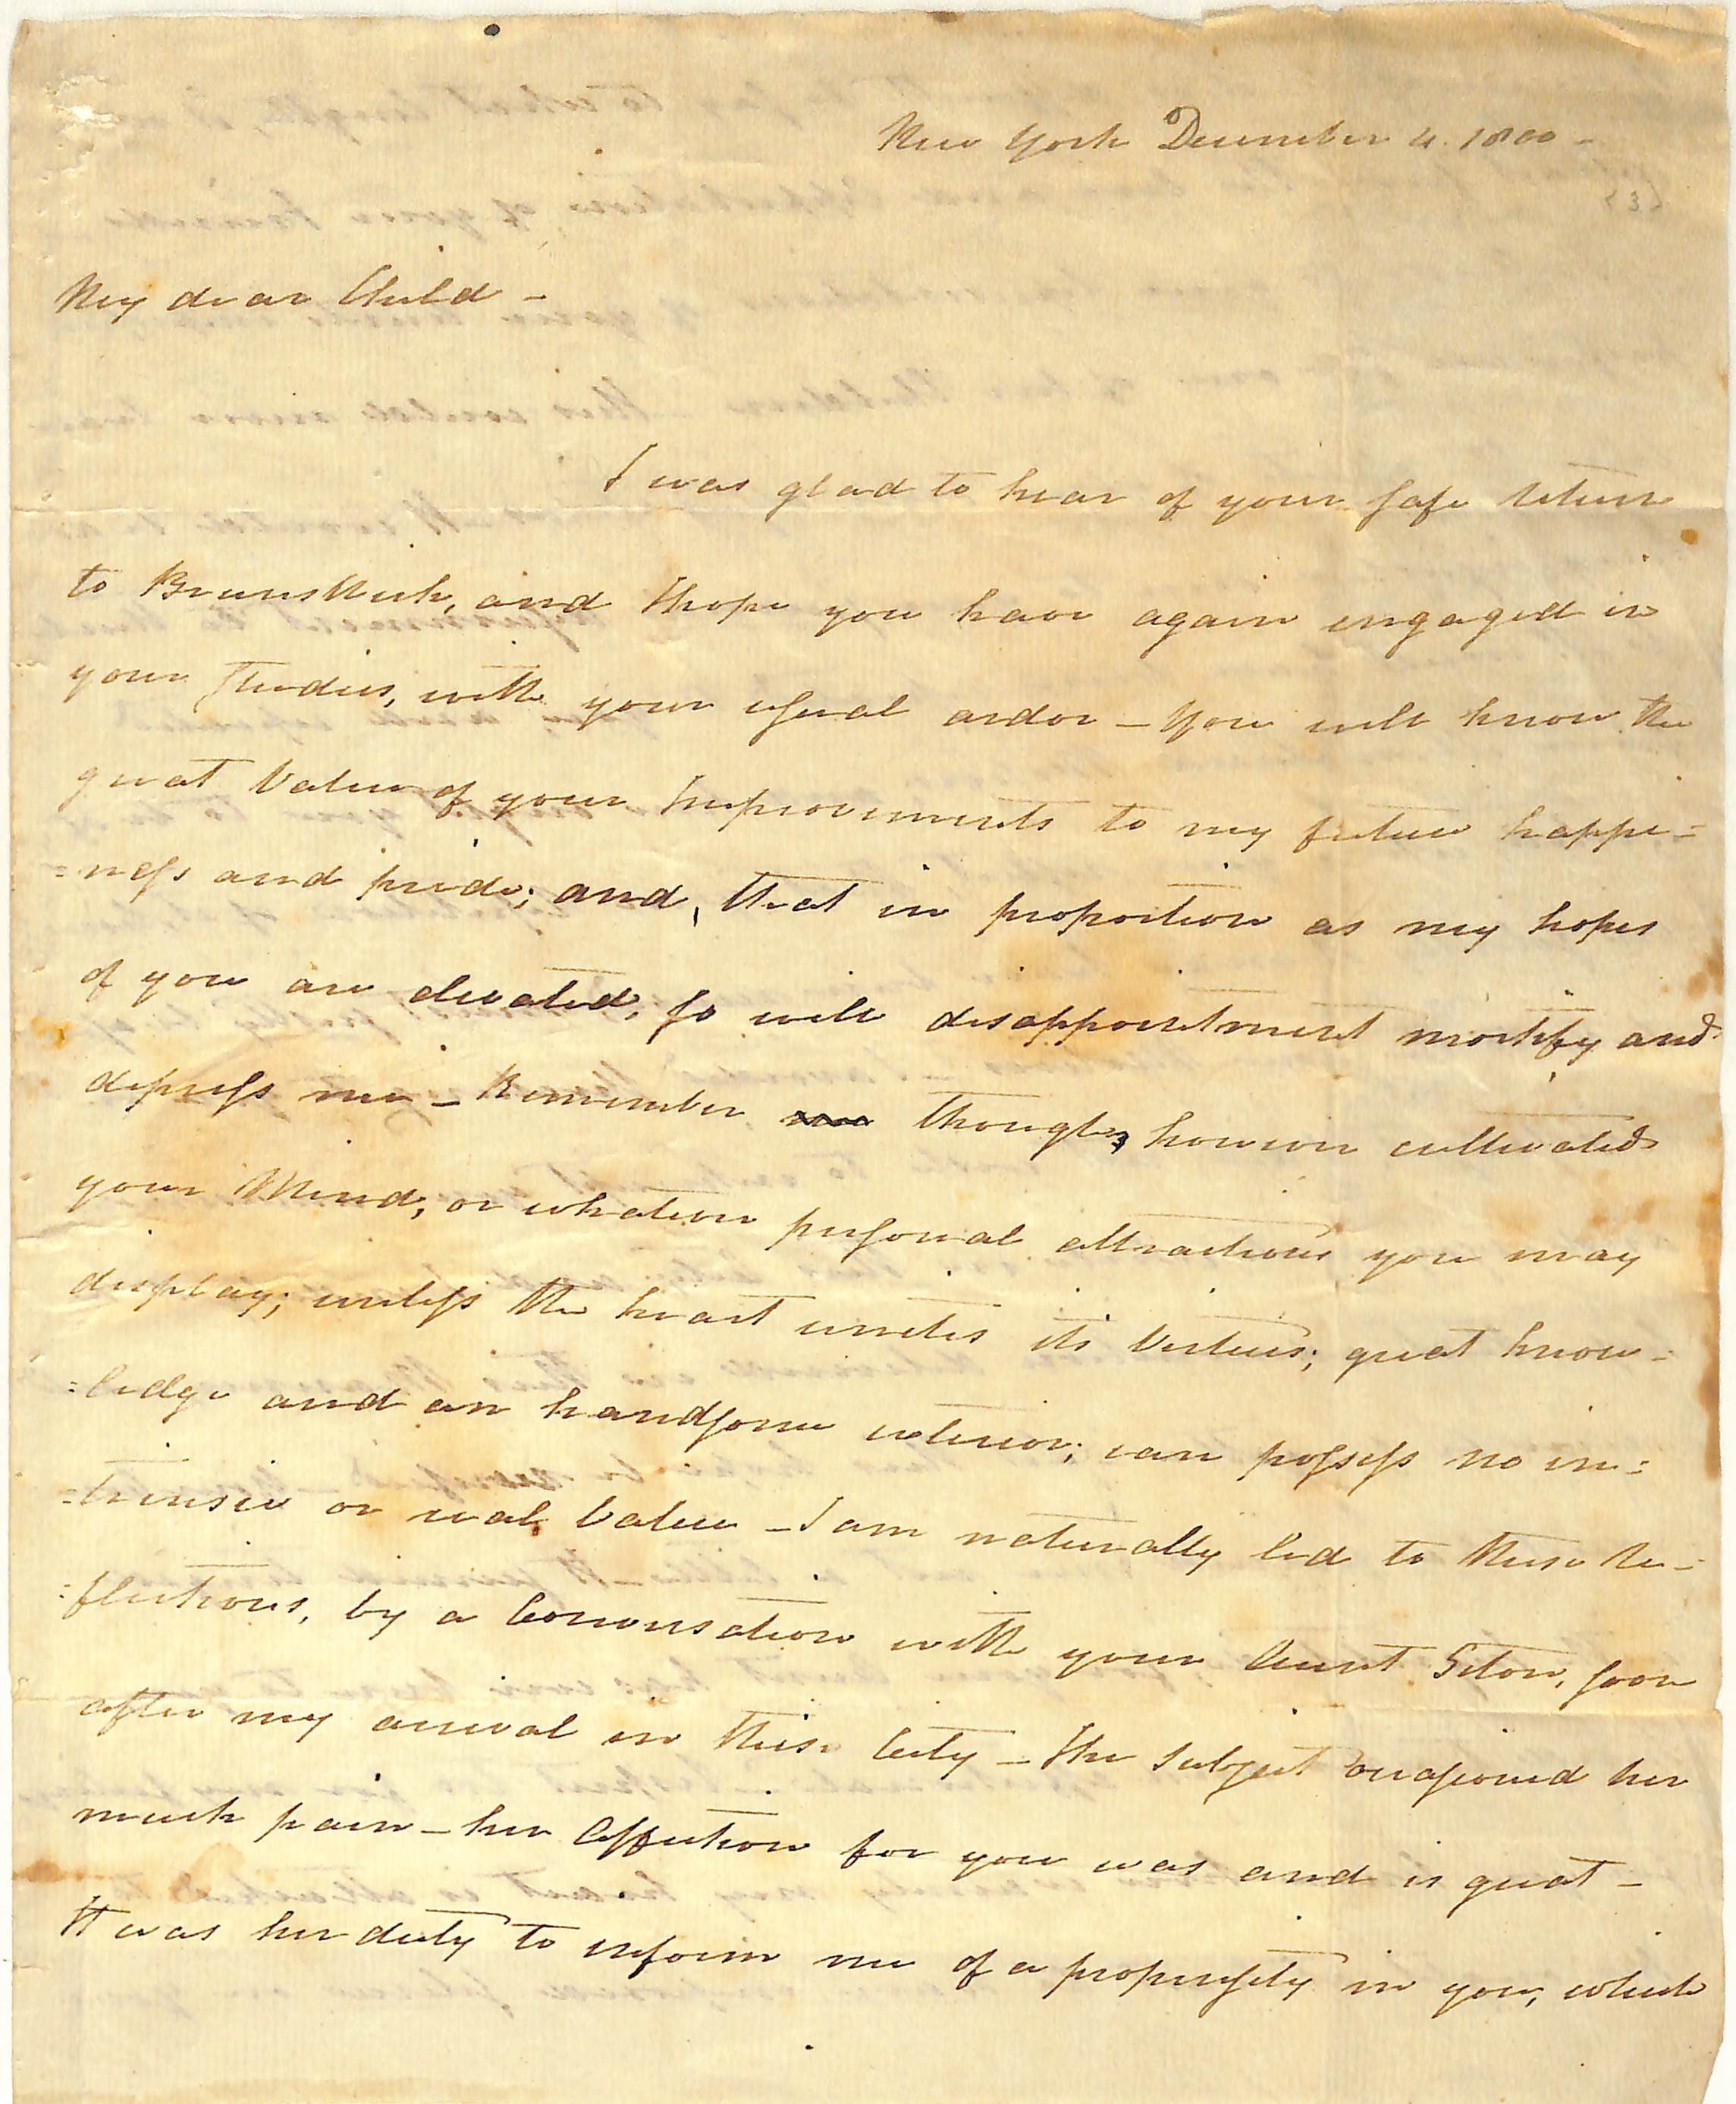 New York December 4. 1800 -
<3>
My dear Child -
I was glad to hear of your safe return
to Brunswick, and I hope you have again engaged in
your studies, with your usual ardor - You well know the
great Value of your Improvements to my future happi=
=ness and pride; and, that in proportion as my hopes
of you are elevated, so will disappointment mortify and
depress me - Remember though, however cultivated
your Mind, or whatever personal attractions you may
display; unless the heart unites its Virtues; great know=
=ledge and an handsome exterior; can possess no in=
=trinsic or real Value - I am naturally led to these re=
=flections, by a Conversation with your Aunt Seton, soon
after my arrival in this City - The subject occasioned her
much pain - her Affection for you was and is great -
It was her duty to inform me of a propensity in you, which